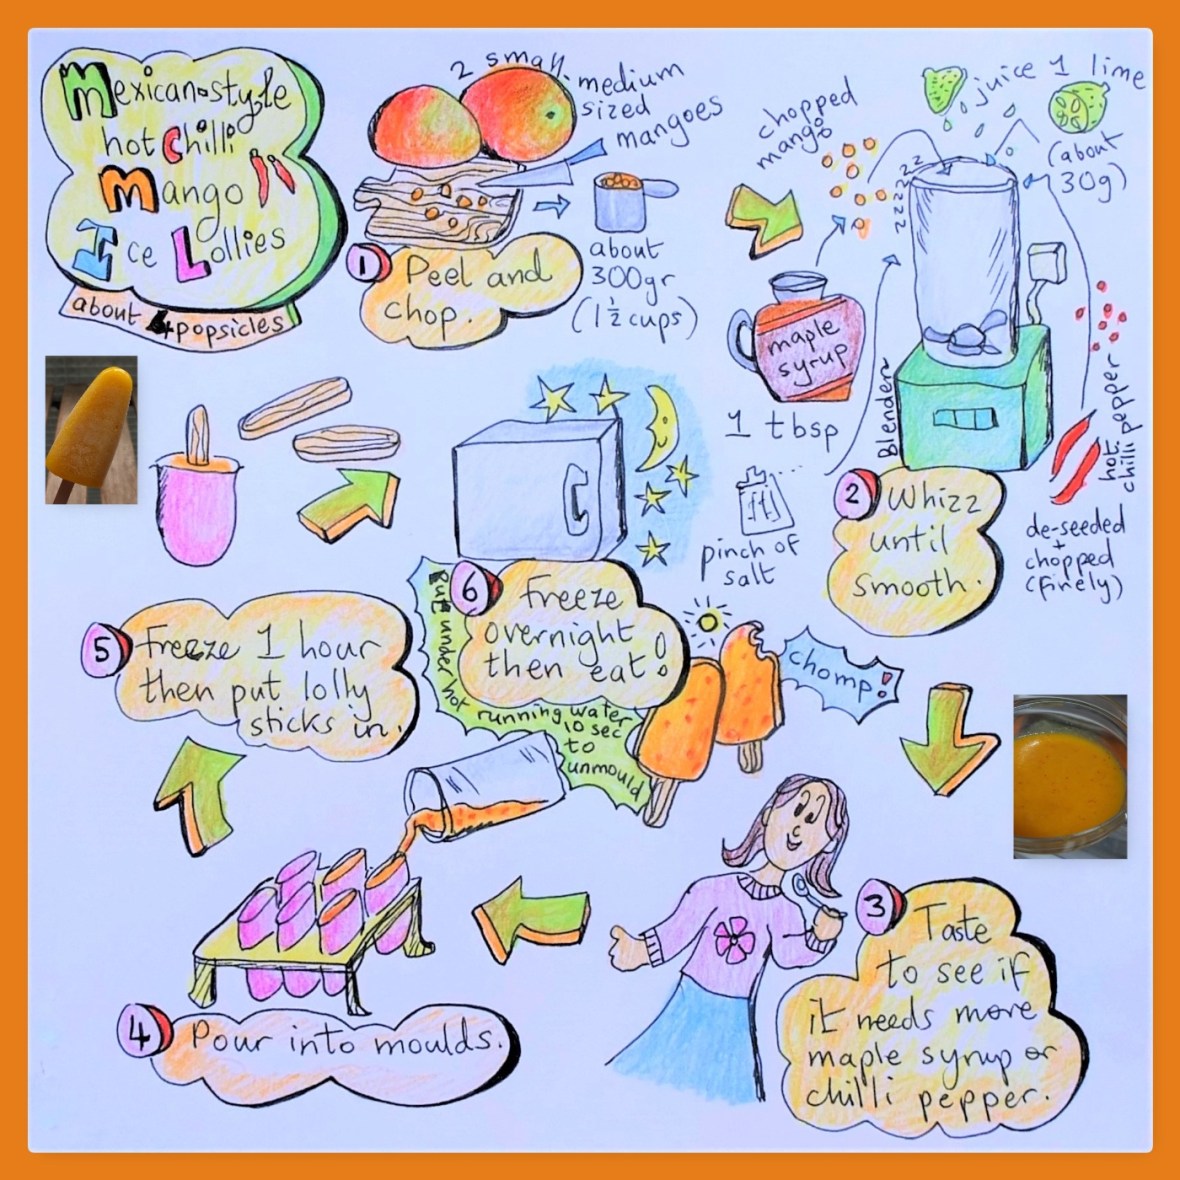 Mexican-style
hot Chilli
Mango
Ice Lollies
about 4 popsicles
2 small-medium
sized
mangoes
1 Peel and
chop.
about
300gr
(1 1/2 cups)
chopped
mango
juice 1 lime
(about
30g)
maple
syrup
1 tbsp
pinch of
salt
Blender
zzzzzz
hot
chilli pepper
de-seeded
+
chopped
(finely)
2 Whizz
until
smooth.
3 Taste
to see if
it needs more
maple syrup or
chilli pepper.
4 Pour into moulds.
5 Freeze 1 hour
then put lolly
sticks in.
6 Freeze
overnight
then eat!
Put under hot running water
10 sec
to
unmould
chomp!